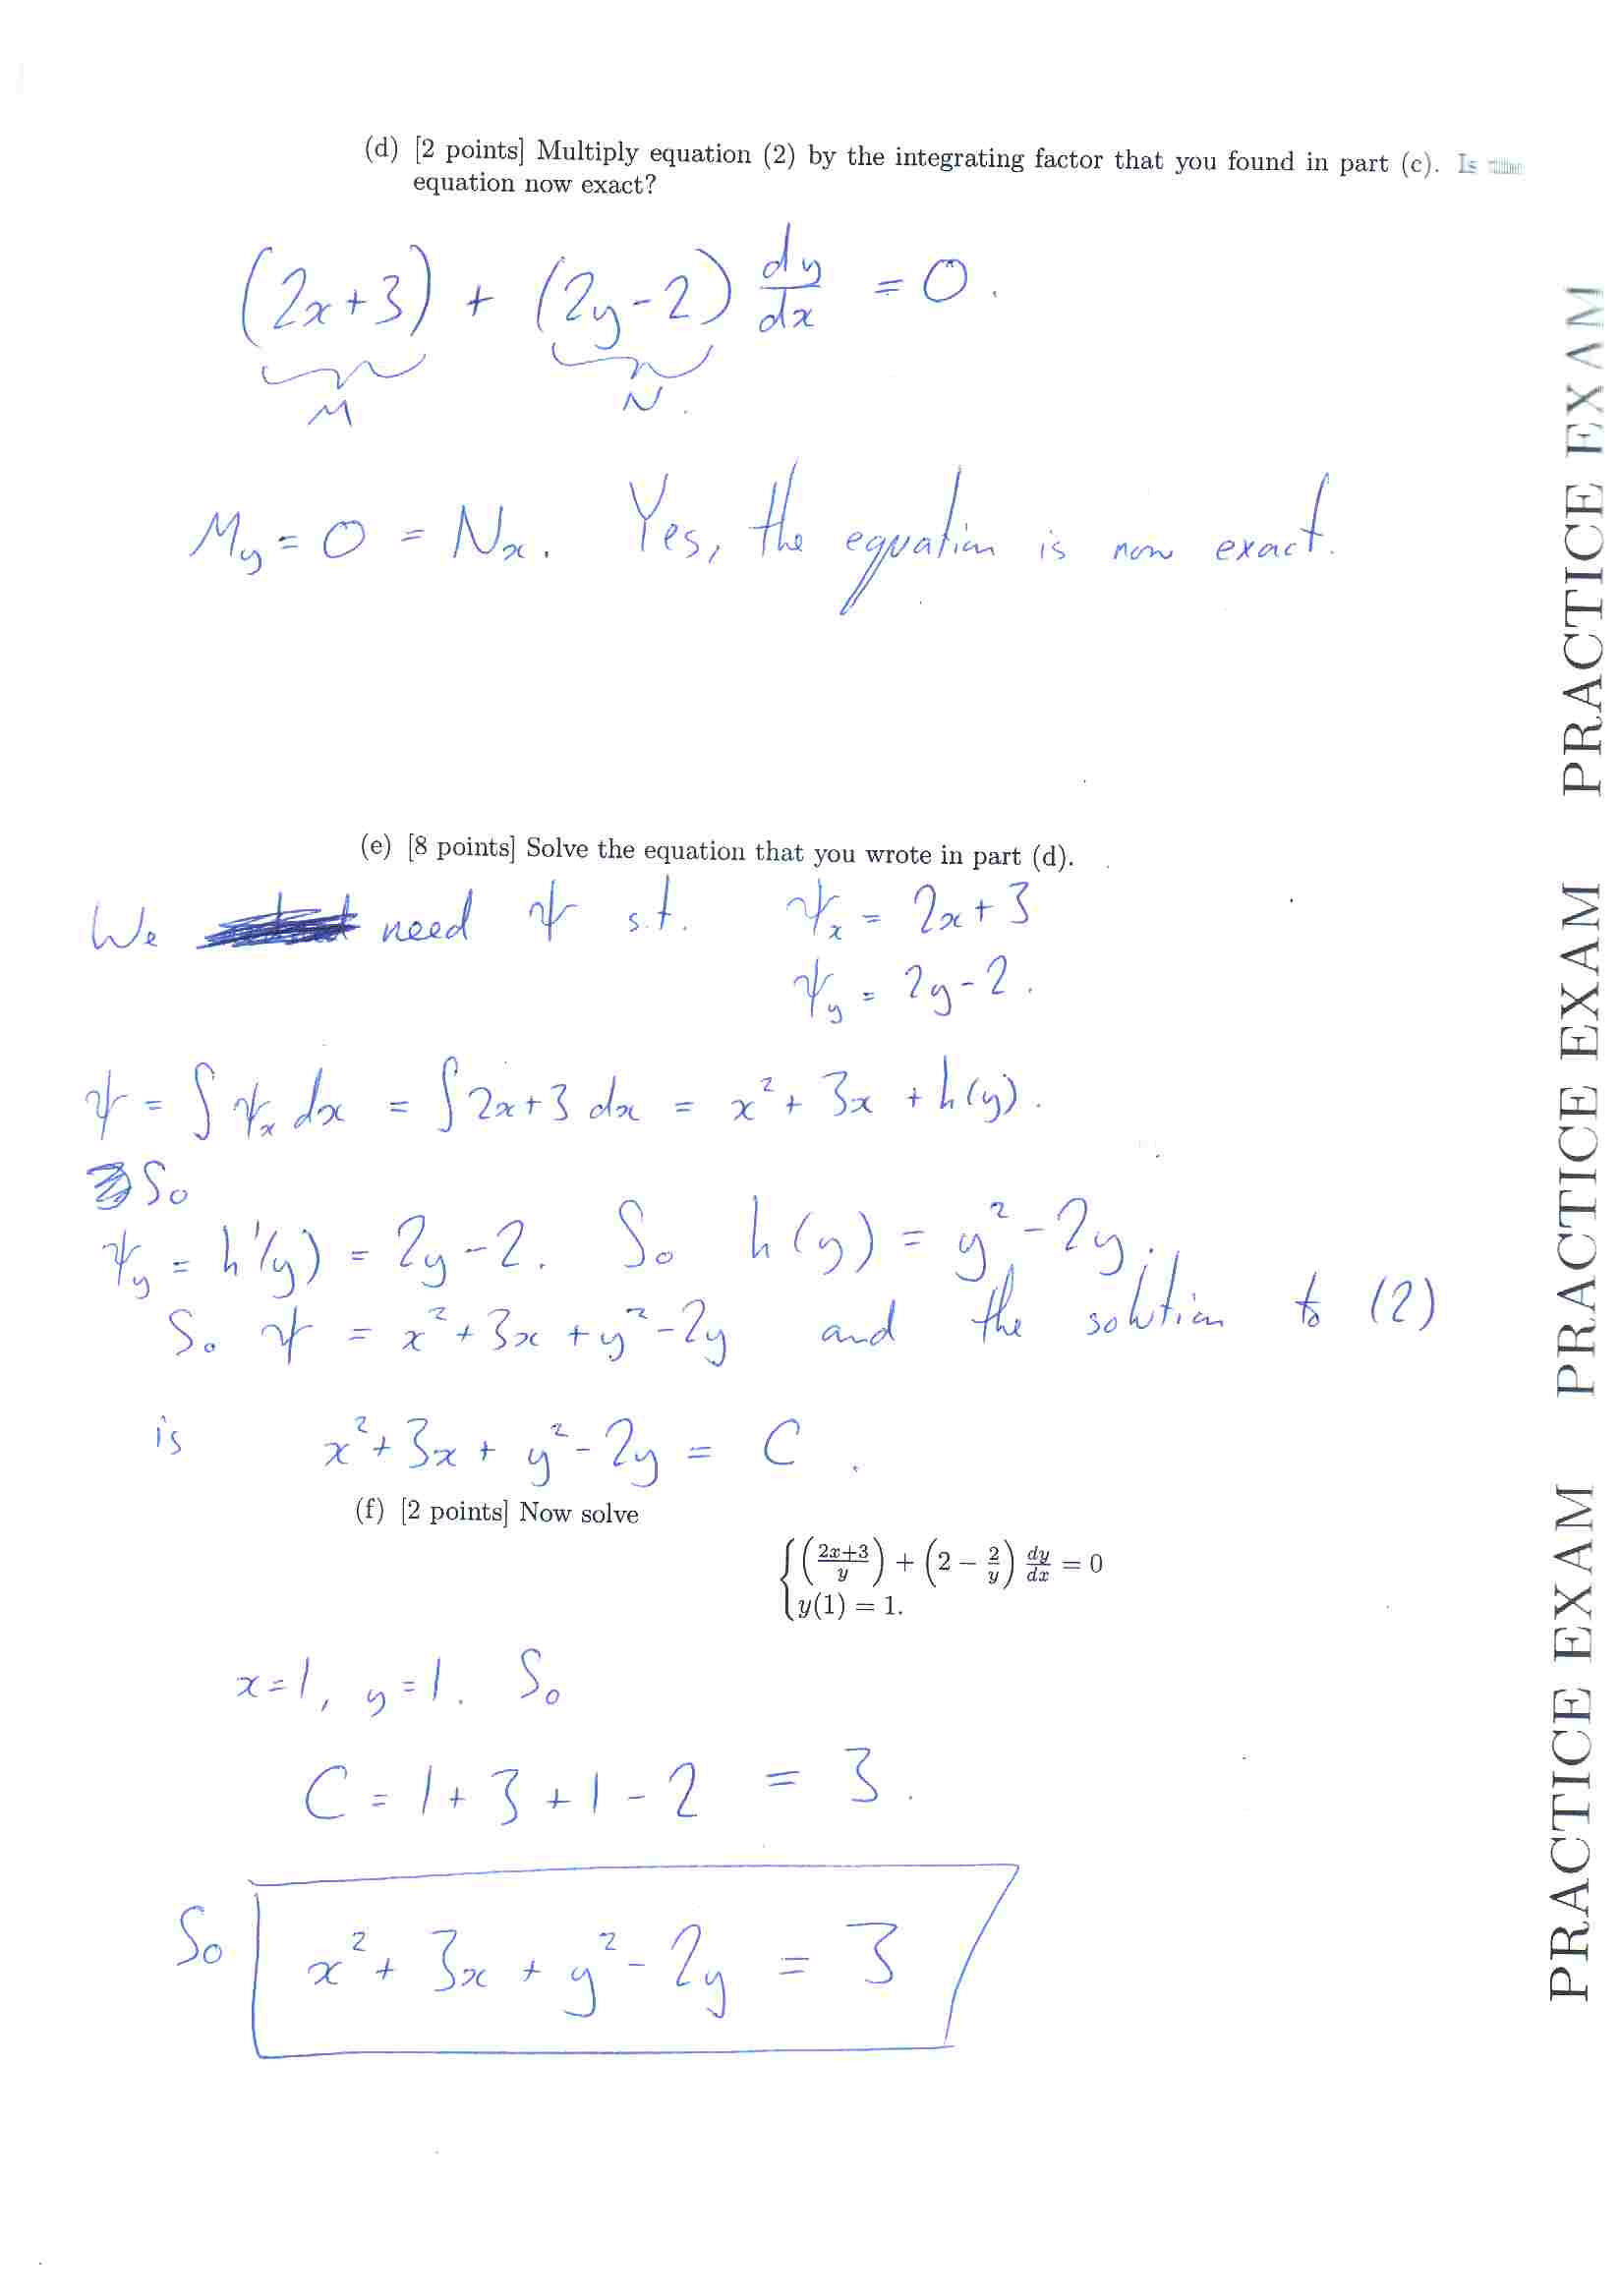 (d) [2 points] Multiply equation (2) by the integrating factor that you found in part (c). Is
equation now exact?
(2x+3) + (2y-2) dy/dx = 0.
M N.
My = 0 = Nx. Yes, the equation is now exact.
(e) [8 points] Solve the equation that you wrote in part (d).
We need ψ s.t. ψx = 2x+3
ψy = 2y-2.
ψ = ∫ ψx dx = ∫ 2x+3 dx = x² + 3x + h(y).
So
ψy = h'(y) = 2y-2. So h(y) = y² - 2y.
So ψ = x² + 3x + y² - 2y and the solution to (2)
is x² + 3x + y² - 2y = C.
(f) [2 points] Now solve
{ ((2x+3)/y) + (2 − 2/y) dy/dx = 0
y(1) = 1.
x=1, y=1. So
C = 1 + 3 + 1 - 2 = 3.
So x² + 3x + y² - 2y = 3
PRACTICE EXAM PRACTICE EXAM PRACTICE EXAM